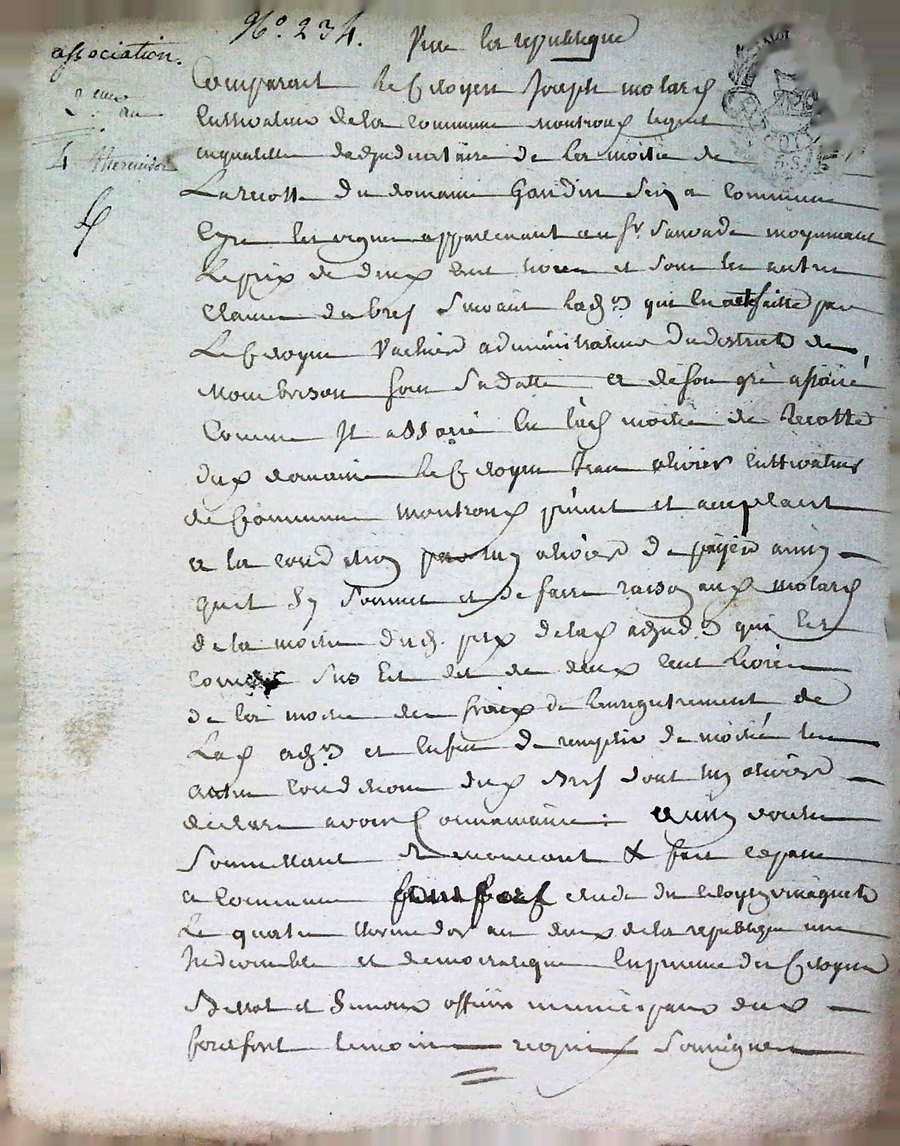 N.º 234.
association.
2.eme an
4 thermidor
Vive la republique
Comparait le Citoyen Joseph molard
Cultivateur de la Commune montroux lequel
en qualitte dadjudicataire de la moitié de
La recotte du domaine Gandin Seiz a Commune
les vignes appartenant au Sr. Sauvade moyennant
Le prix de deux cent livres et sous les autres
Clauses du bref Suivant ladjon qui lui a etté faitte par
Le Citoyen Vachier administrateur du district de
Montbrison Sous Sa datte et de son gré associé
Comme Il associe en lad moitié de Recotte
dud domaine le Citoyen Jean olivier Cultivateur
de Commune montroux présent et acceptant
a la condition par luy olivier de payer ainsy
quil Sy Soumet et de faire raison aud molard
de la moitié dud. prix de lad adjudon qui est
comme Sus Est dit de deux cent livres
de la moitié des fraix de l'enregistrement de
Lad adjon et enfin de remplir de moitié les
autres conditions dud Bref dont luy olivier
declare avoir Connaissance: ainsy voulu
Soumettant Renoncant & fait et passé
a Commune etude du Citoyen
Le quatre thermidor an deux de la republique une
Indivisible et democratique En presence des Citoyens
et Simon officiers municipaux dud
temoins requis Soussignes